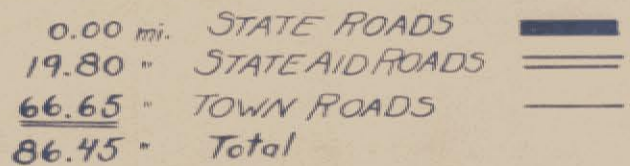 0.00 mi. STATE ROADS
19.80 " STATE AID ROADS
66.65 " TOWN ROADS
86.45 " Total